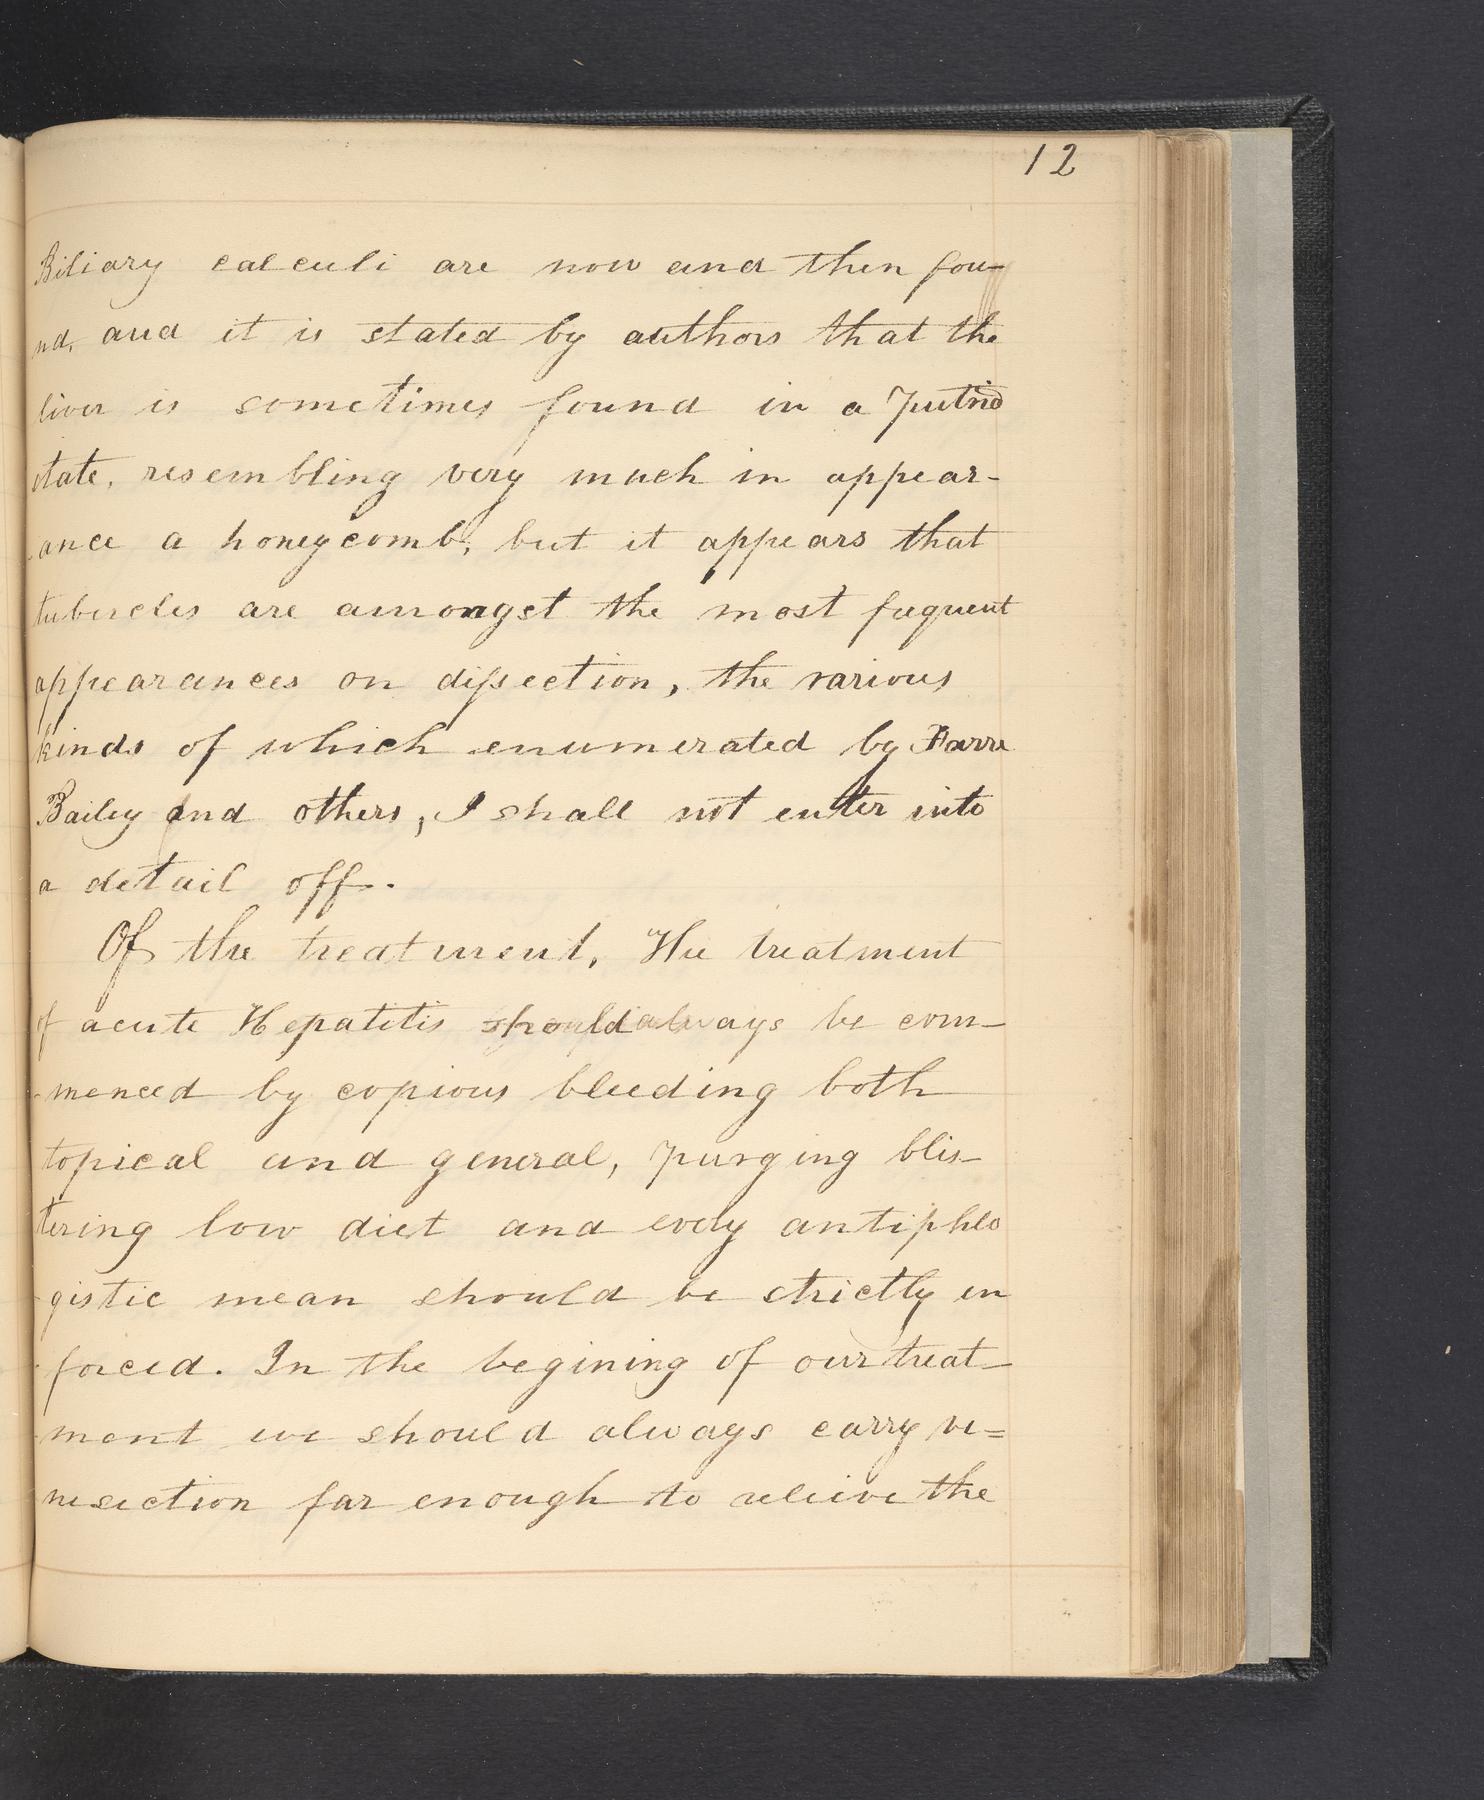 12
Biliary calculi are now and then fou-
nd, and it is stated by authors that the
liver is sometimes found in a putrid
state, resembling very much in appear-
ance a honeycomb, but it appears that
tubercles are amongst the most fequent
appearances on dissection, the various
kinds of which enumerated by Farre
Bailey and others, I shall not enter into
a detail off.
Of the treatment, The treatment
of acute Hepatitis should always be com-
-menced by copious bleeding both
topical and general, purging blis-
tering low diet and every antiphlo
-gistic mean should be strictly en
-forced. In the begining of our treat-
-ment we should always carry ve=
nesection far enough to relieve the